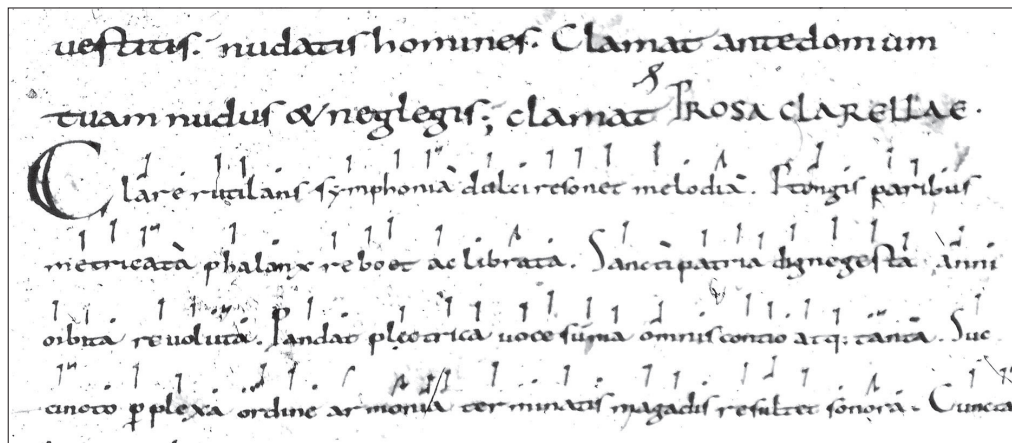 vestitis. nudatis homines. Clamat ante domum
tuam nudus & neglegis; clamat PROSA CLARELLAE.
Clare rutilans symphoniā dulci resonet melodiā. Ptongis paribus
metricatā phalanx reboet ac librata. Sancti patria digne gesta anni
orbita revoluta. Pandat plectrica voce sūma omnis contio atq; tanta. Suc
cincto p plexa ordine armonia terminatis magadis resultet sonora. Cuncta